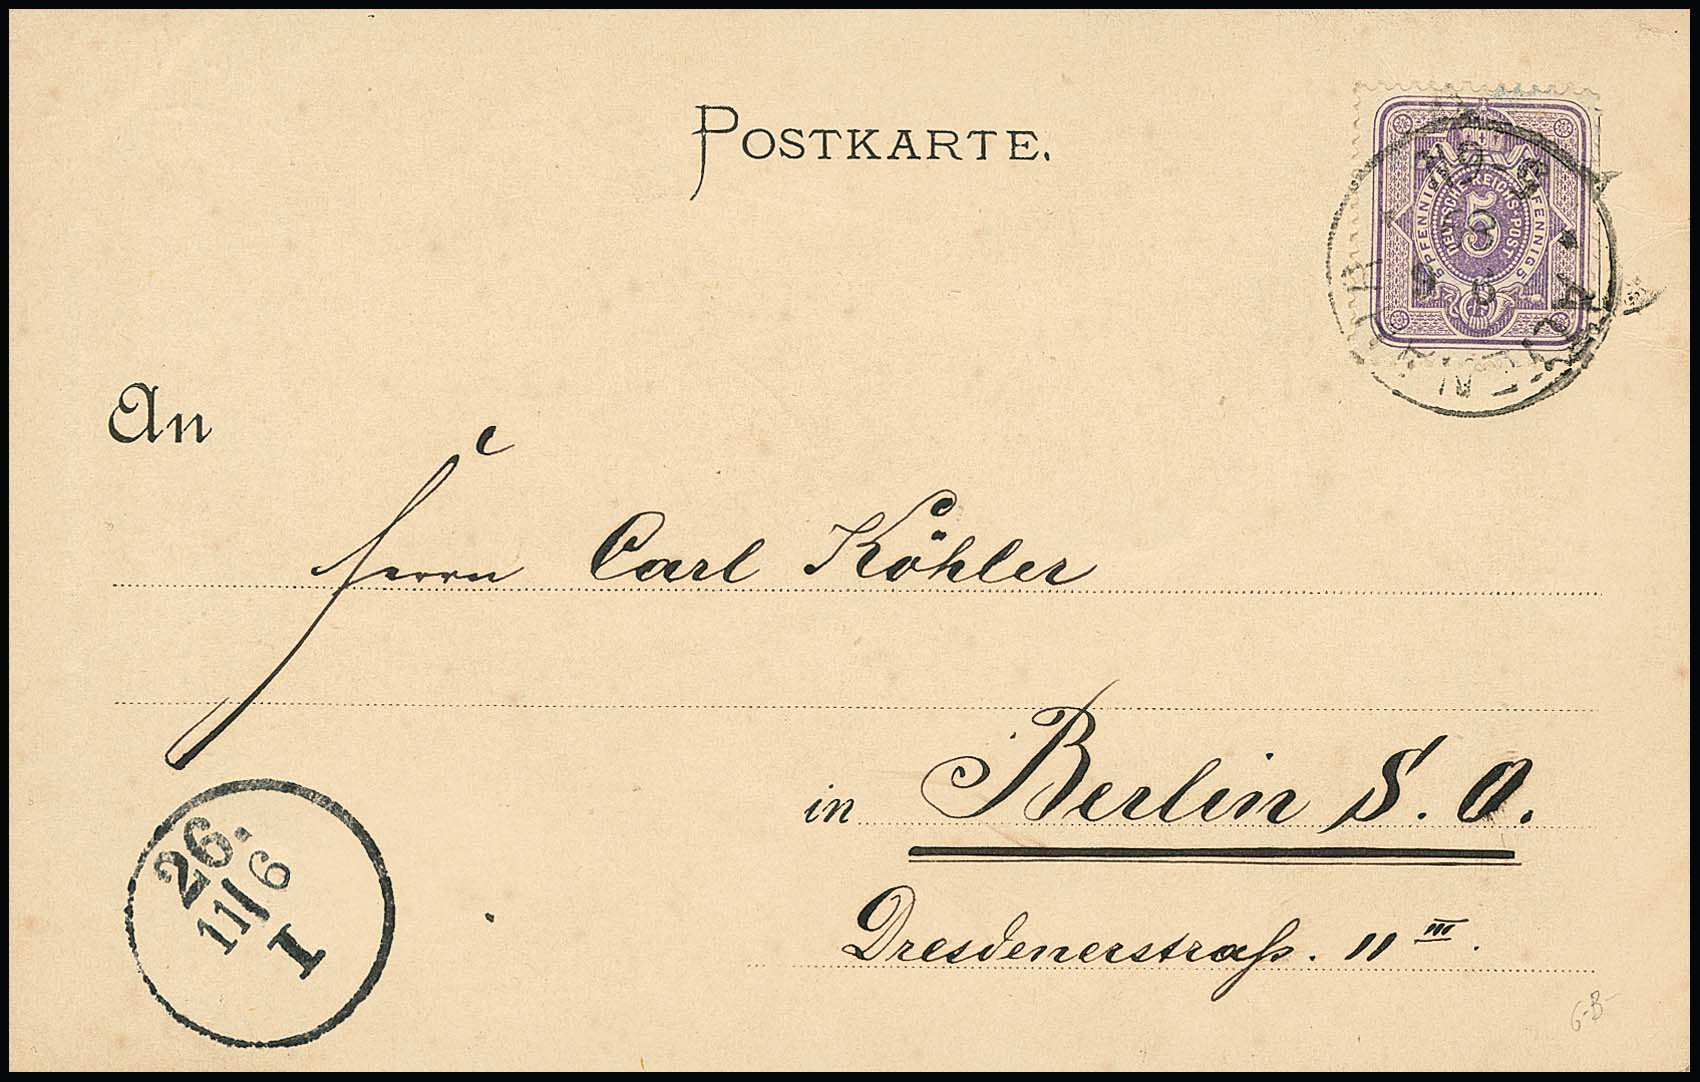 POSTKARTE.
5 PFENNIGE
PFENNIG 5
DEUTSCHE REICHS-POST
5
An
Herrn Carl Köhler
in Berlin S. O.
Dresdenerstraß. 11 III.
26.
11/6
I